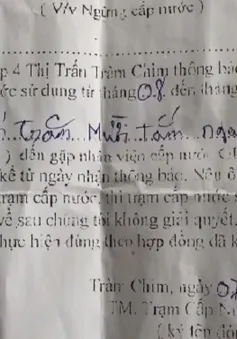 ( V/v Ngừng cấp nước )
p 4 Thị Trấn Tràm Chim thông báo
ớc sử dụng từ tháng 08 đến tháng
Trăm Mười Tám
) đến gặp nhân viên cấp nước
kể từ ngày nhận thông báo. Nếu ô
trạm cấp nước, thì trạm cấp nước s
về sau chúng tôi không giải quyết.
hực hiện đúng theo hợp đồng đã k
Tràm Chim, ngày 07
TM. Trạm Cấp N
( ký tên đó